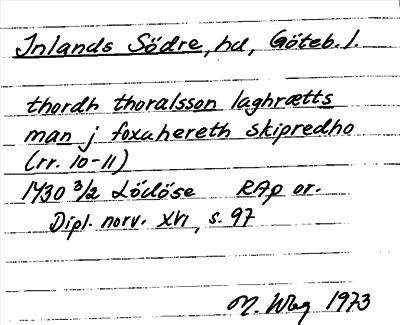 Inlands Södre, hd, Göteb. l.
thordh thoralsson laghrætts
man j foxuhereth skipredho
(rr. 10-11)
1430 3/2 Lödöse RAp or.
Dipl. norv. XVI, s. 97
M. Wbg 1973